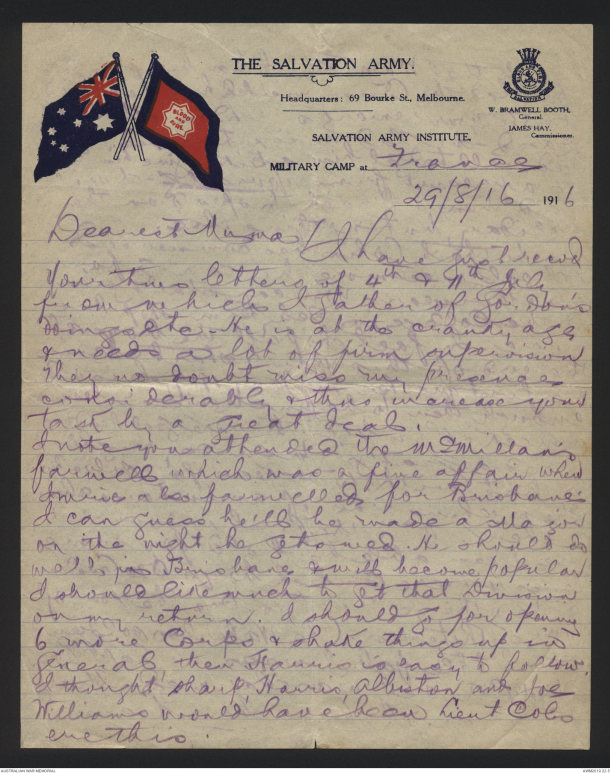 THE SALVATION ARMY.
Headquarters: 69 Bourke St., Melbourne.
W. BRAMWELL BOOTH,
General.
JAMES HAY,
Commissioner.
SALVATION ARMY INSTITUTE,
MILITARY CAMP at France
29/8/16 1916
BLOOD AND FIRE
Dearest Mumma I have just recvd
Your two letters of 4th & 11th July
from which I gather of Gordon's
doings etc. He is at the cranky age
& needs a lot of firm supervision
They no doubt miss my presence
considerably & thus increase your
task by a great deal.
I note you attended the McMillan's
farwell which was a fine affair when
also farwelled for Brisbane.
I can guess he'll be made a Major
on the night he He should do
well in Brisbane & will become popular
I should like much to get that Division
on my return. I should go for opening
6 more Corps & shake things up in
general then Harris is easy to follow.
I thought Sharp, Harris, Albiston and Joe
Williams would have been Lieut Cols
ere this.
AUSTRALIAN WAR MEMORIAL